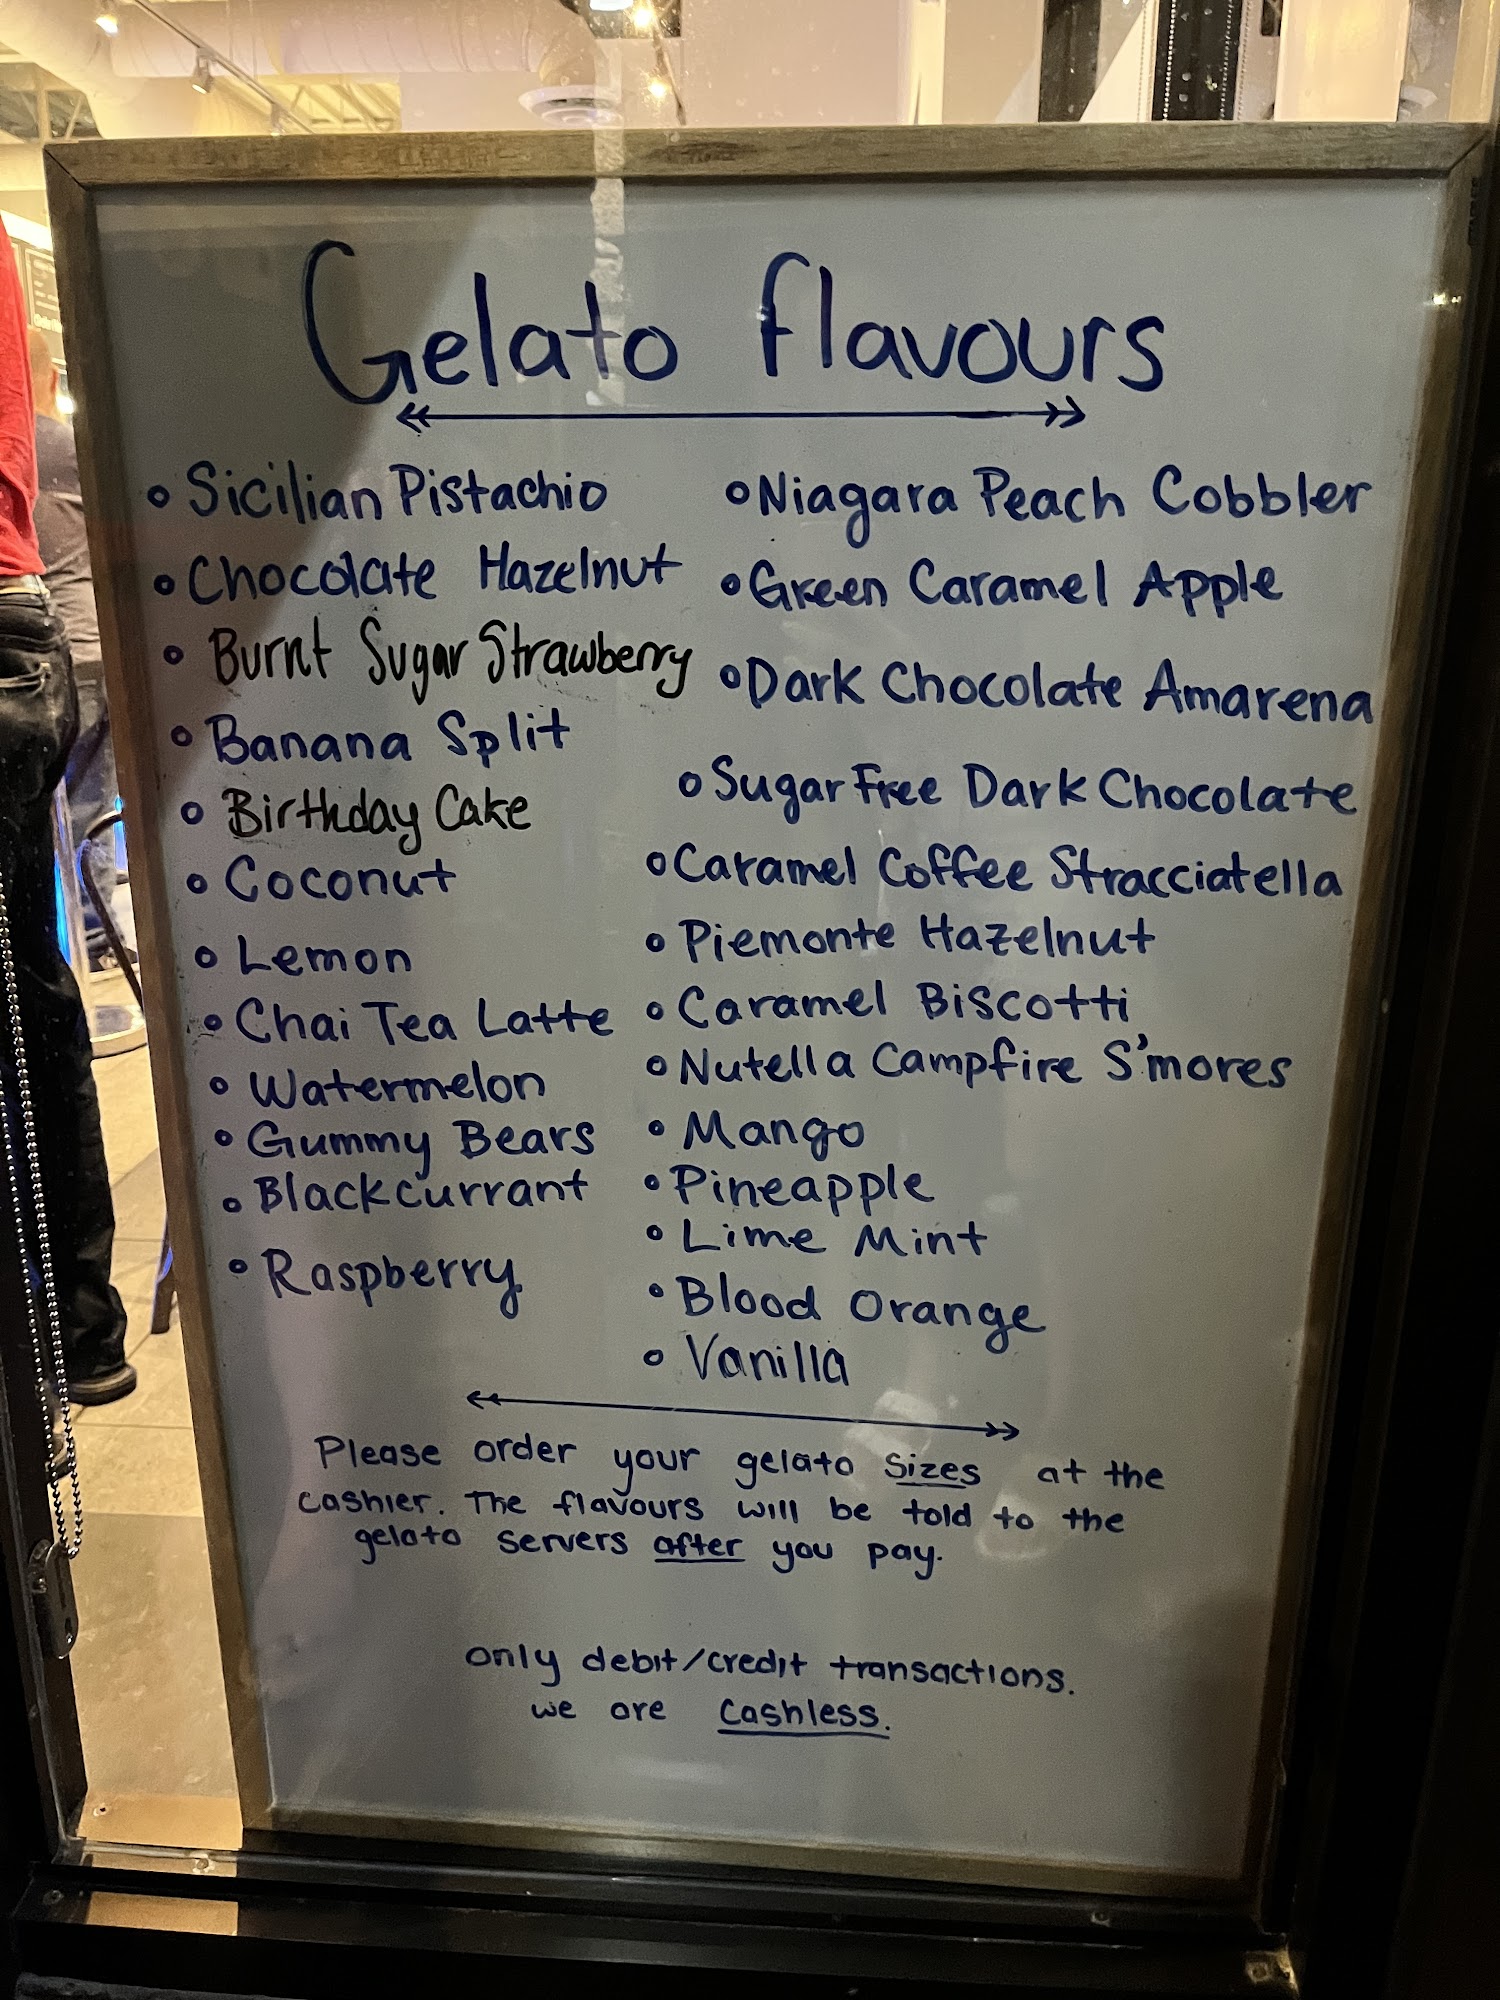 Gelato flavours
• Sicilian Pistachio
• Chocolate Hazelnut
• Burnt Sugar Strawberry
• Banana Split
• Birthday Cake
• Coconut
• Lemon
• Chai Tea Latte
• Watermelon
• Gummy Bears
• Blackcurrant
• Raspberry
• Niagara Peach Cobbler
• Green Caramel Apple
• Dark Chocolate Amarena
• Sugar Free Dark Chocolate
• Caramel Coffee Stracciatella
• Piemonte Hazelnut
• Caramel Biscotti
• Nutella Campfire S'mores
• Mango
• Pineapple
• Lime Mint
• Blood Orange
• Vanilla
Please order your gelato sizes at the
cashier. The flavours will be told to the
gelato servers after you pay.
only debit/credit transactions.
we are cashless.